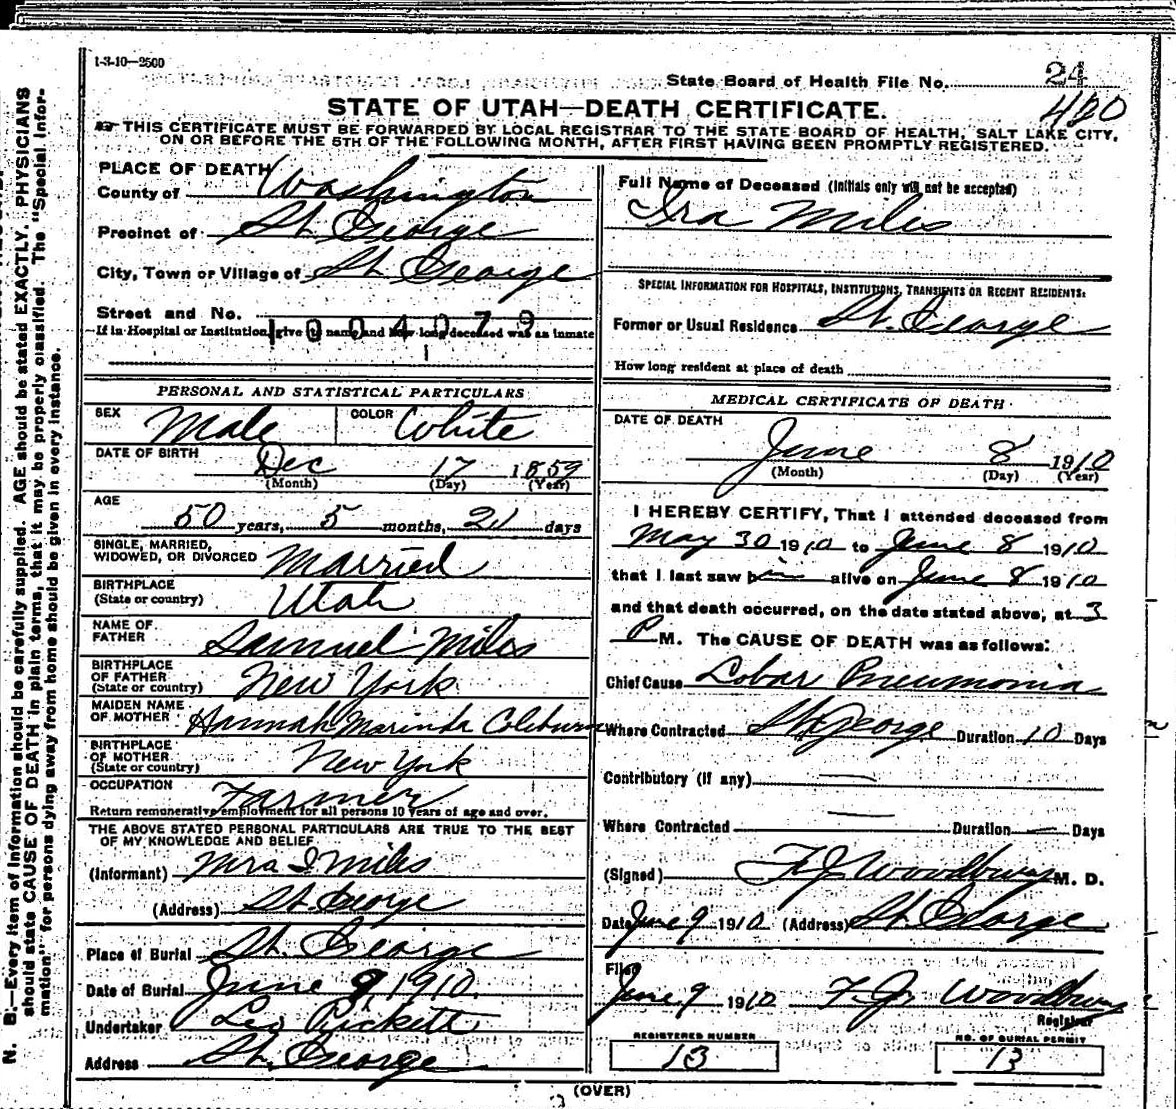 1-3-10—2500
State Board of Health File No. 24
420
STATE OF UTAH—DEATH CERTIFICATE.
THIS CERTIFICATE MUST BE FORWARDED BY LOCAL REGISTRAR TO THE STATE BOARD OF HEALTH, SALT LAKE CITY,
ON OR BEFORE THE 5TH OF THE FOLLOWING MONTH, AFTER FIRST HAVING BEEN PROMPTLY REGISTERED.
PLACE OF DEATH
County of Washington
Precinct of St George
City, Town or Village of St George
Street and No.
1004079
If in Hospital or Institution, give its name and how long deceased was as inmate
PERSONAL AND STATISTICAL PARTICULARS
SEX Male COLOR White
DATE OF BIRTH Dec 17 1859
(Month) (Day) (Year)
AGE
50 years, 5 months, 21 days
SINGLE, MARRIED,
WIDOWED, OR DIVORCED Married
BIRTHPLACE
(State or country) Utah
NAME OF
FATHER Samuel Miles
BIRTHPLACE
OF FATHER
(State or country) New York
MAIDEN NAME
OF MOTHER Hannah Marinda Coleburn
BIRTHPLACE
OF MOTHER
(State or country) New York
OCCUPATION Farmer
Return remunerative employment for all persons 10 years of age and over.
THE ABOVE STATED PERSONAL PARTICULARS ARE TRUE TO THE BEST
OF MY KNOWLEDGE AND BELIEF
(Informant) Mrs I Miles
(Address) St George
Place of Burial St. George
Date of Burial June 9, 1910.
Undertaker Leo Pickett
Address St. George
Full Name of Deceased (Initials only will not be accepted)
Ira Miles
SPECIAL INFORMATION FOR HOSPITALS, INSTITUTIONS, TRANSIENTS OR RECENT RESIDENTS:
Former or Usual Residence St. George
How long resident at place of death
MEDICAL CERTIFICATE OF DEATH
DATE OF DEATH
June 8 1910
(Month) (Day) (Year)
I HEREBY CERTIFY, That I attended deceased from
May 30 1910 to June 8 1910
that I last saw him alive on June 8 1910
and that death occurred, on the date stated above, at 3
P M. The CAUSE OF DEATH was as follows:
Chief Cause Lobar Pneumonia
Where Contracted St George Duration 10 Days
Contributory (if any) —
Where Contracted — Duration — Days
(Signed) F J Woodbury M. D.
Date June 9 1910 (Address) St George
Filed
June 9 1910 F. J. Woodbury
Registrar
REGISTERED NUMBER
13
NO. OF BURIAL PERMIT
13
(OVER)
N. B.—Every item of information should be carefully supplied. AGE should be stated EXACTLY. PHYSICIANS
should state CAUSE OF DEATH in plain terms, that it may be properly classified. The "Special Infor-
mation" for persons dying away from home should be given in every instance.